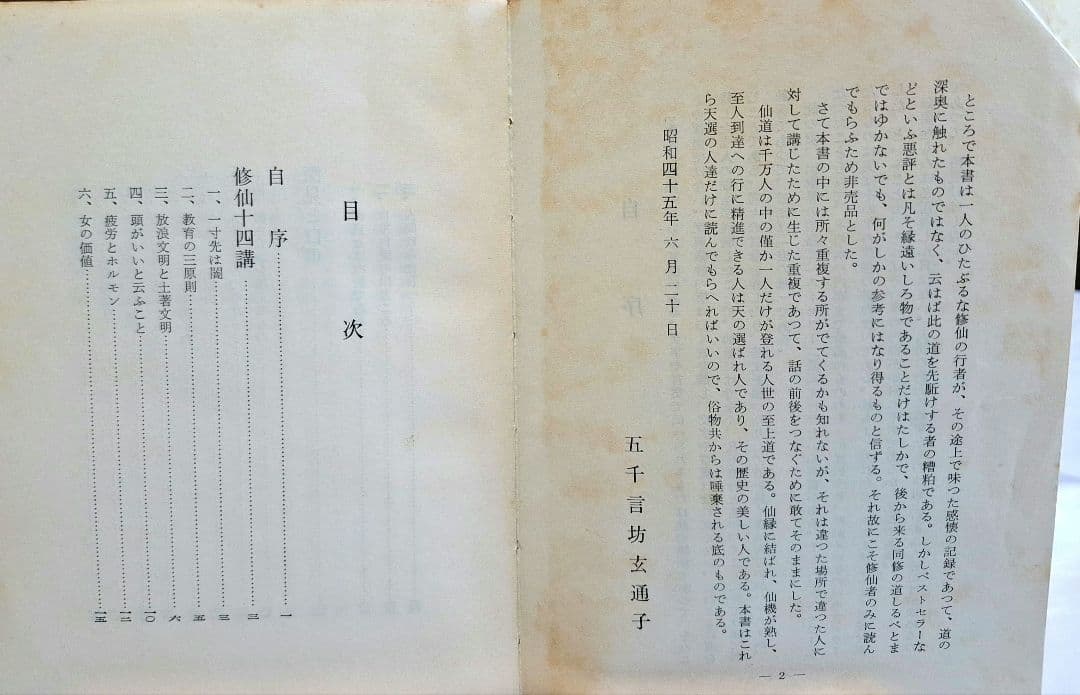 ところで本書は一人のひたぶるな修仙の行者が、その途上で味つた感懐の記録であつて、道の
深奥に触れたものではなく、云はば此の道を先駈けする者の糟粕である。しかしベストセラーな
どといふ悪評とは凡そ縁遠いしろ物であることだけはたしかで、後から来る同修の道しるべとま
ではゆかないでも、何がしかの参考にはなり得るものと信ずる。それ故にこそ修仙者のみに読ん
でもらふため非売品とした。
さて本書の中には所々重複する所がでてくるかも知れないが、それは違つた場所で違つた人に
対して講じたために生じた重複であつて、話の前後をつなぐために敢てそのままにした。
仙道は千万人の中の僅か一人だけが登れる人世の至上道である。仙縁に結ばれ、仙機が熟し、
至人到達への行に精進できる人は天の選ばれ人であり、その歴史の美しい人である。本書はこれ
ら天選の人達だけに読んでもらへればいいので、俗物共からは唾棄される底のものである。
昭和四十五年 六月二十日
五千言坊玄通子
— 2 —
目次
自序……………一
修仙十四講……………三
一、一寸先は闇……………三
二、教育の三原則……………五
三、放浪文明と土著文明……………六
四、頭がいいと云ふこと……………一〇
五、疲労とホルモン……………一二
六、女の価値……………一五